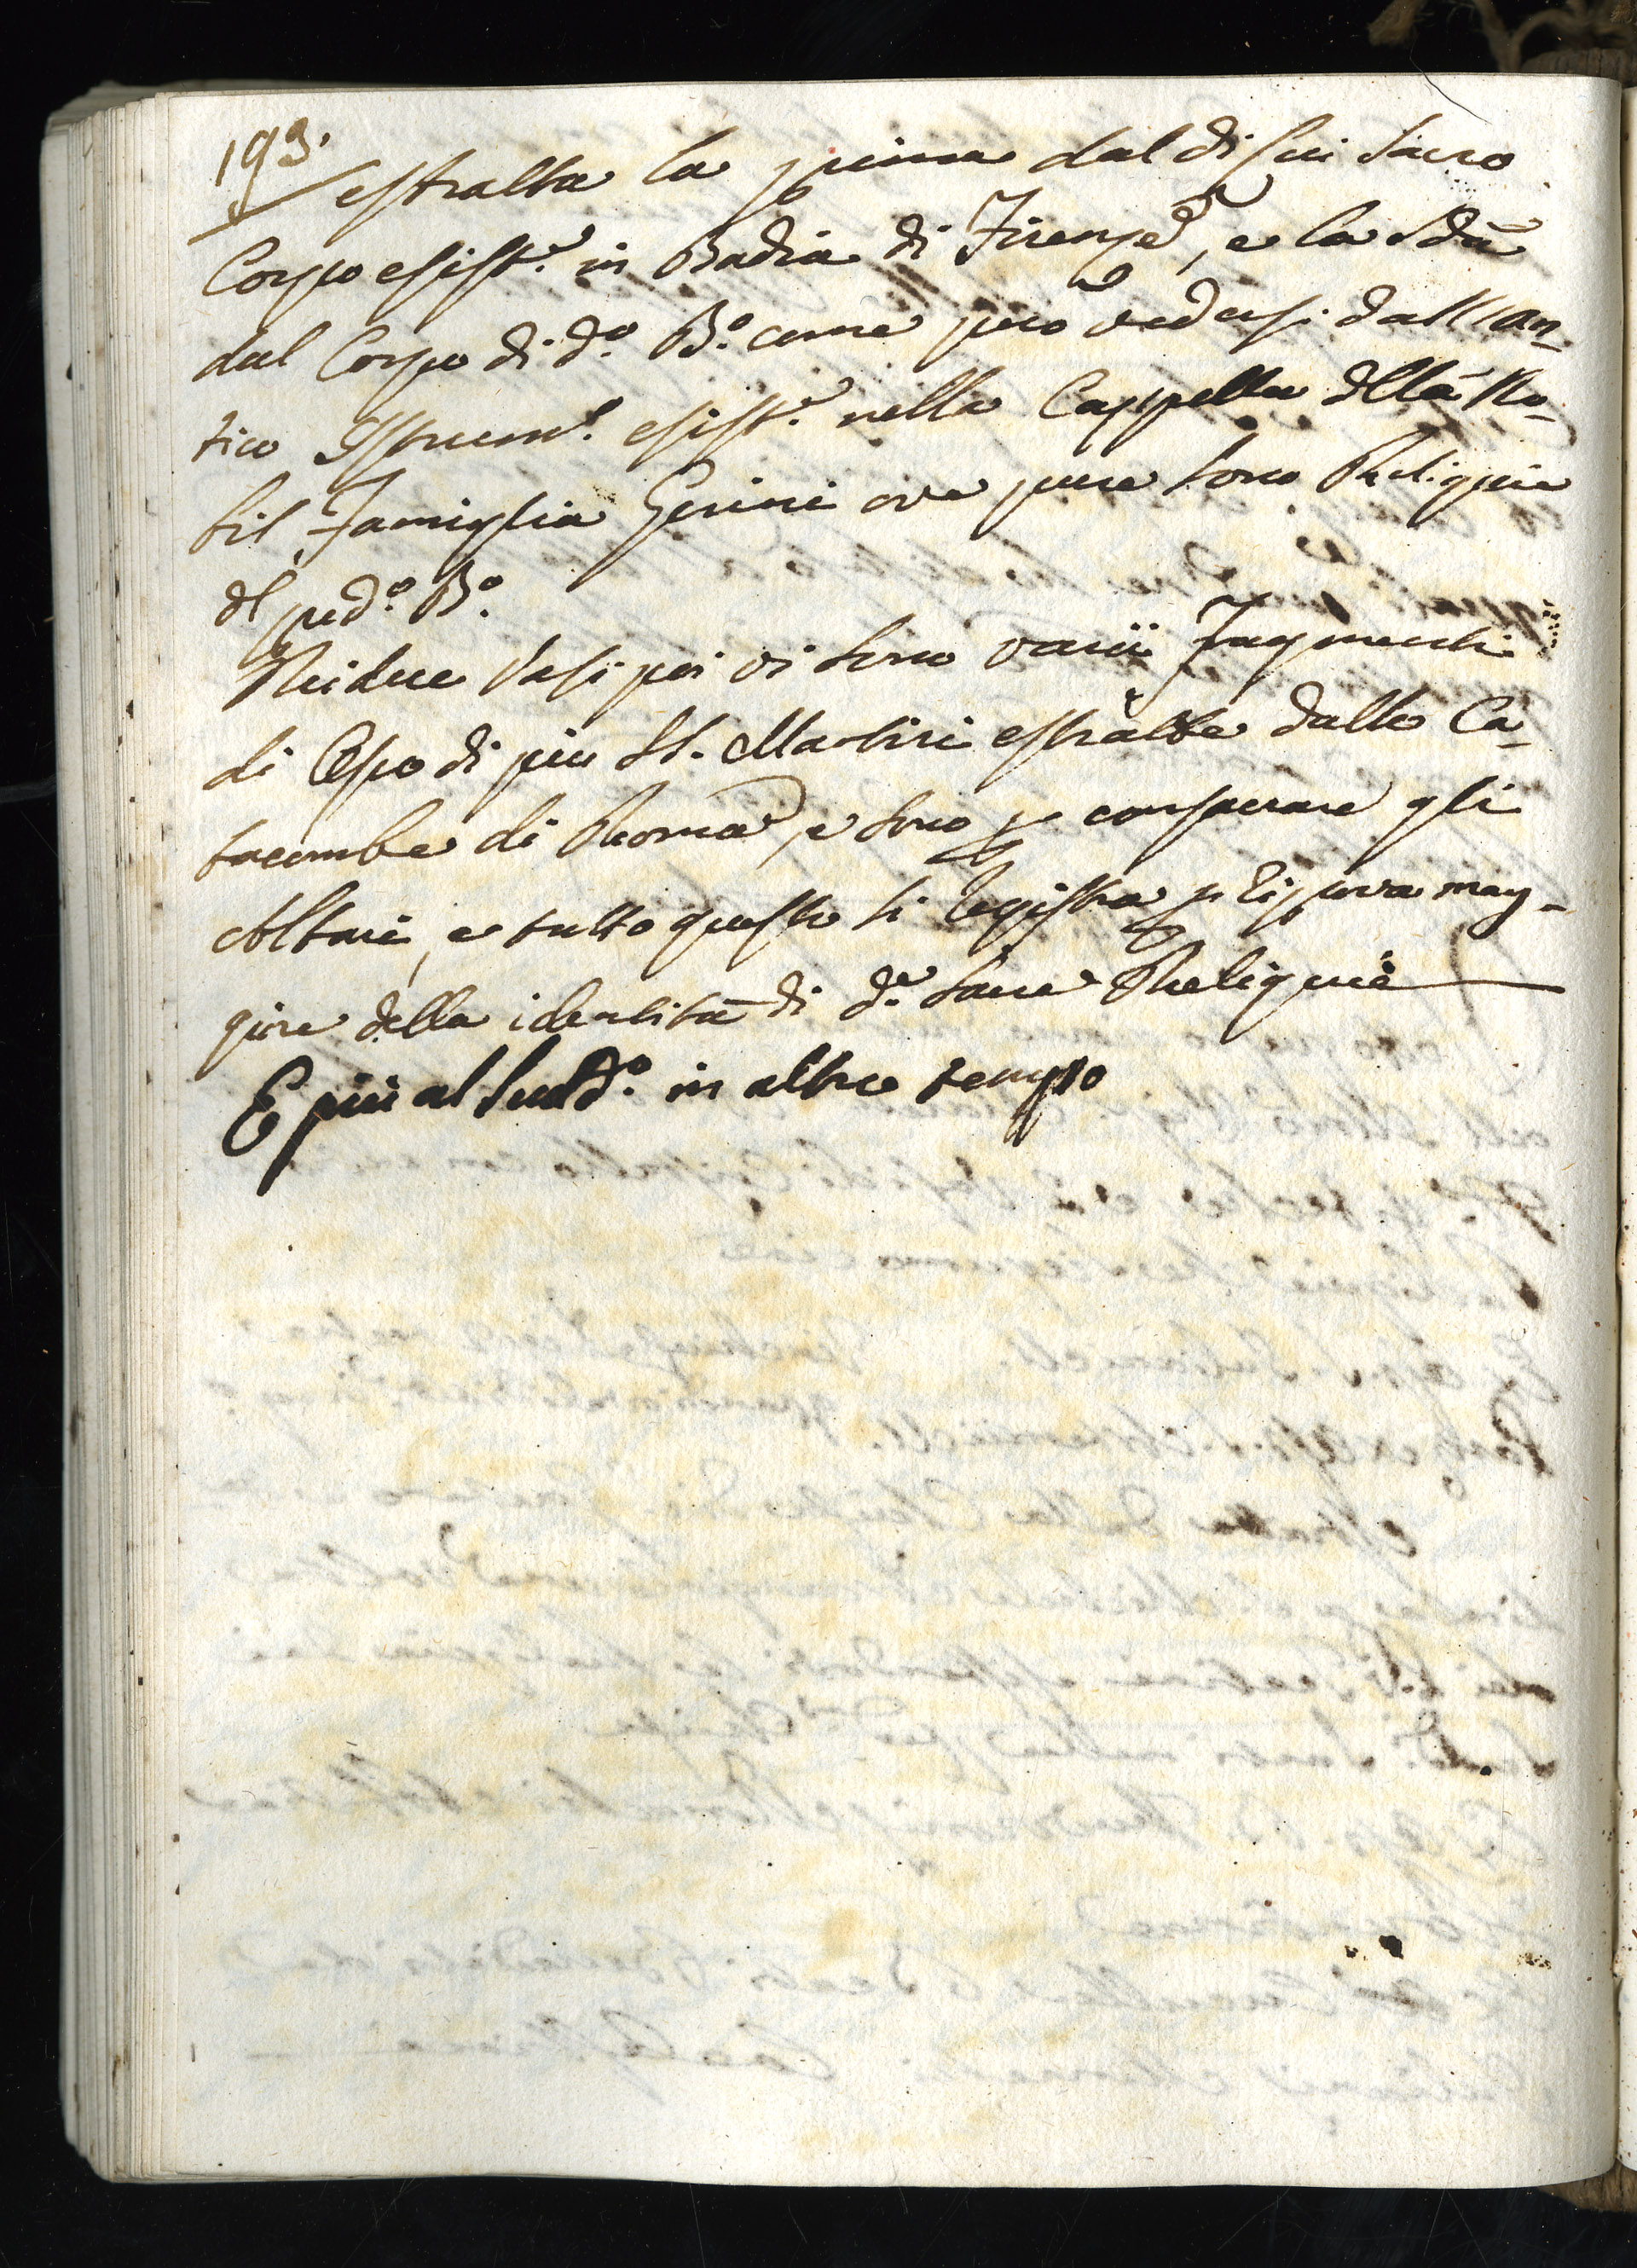 193.
estratta la prima dal di lui Sacro
Corpo esist.e in Badia di Firenze, e la 2da
dal Corpo di d.o B.o come può vedersi dall'an-
tico Istrum.o esist.e nella Cappella dlla No-
bil Famiglia Gerini ove pure sono Reliquie
dl pred.o B.o
Nei due Vasi poi vi sono varii Fragmenti
di Ossa di più SS. Martiri estratte dalle Ca-
tacombe di Roma, e sono p consacrare gli
Altari, e tutto questo si registra p riprova mag-
giore della identità di d.e Sacre Reliquie
E più al Sudd.o in altro tempo